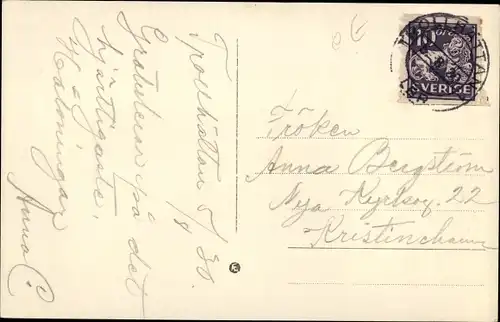 Trollhättan 5/8 30.
Gratuleras på det
hjärtligaste.
Hälsningar
Anna C.
10
SVERIGE
TROLLHÄTTAN
Fröken
Anna Bergström
Nya Kyrkog. 22
Kristinehamn